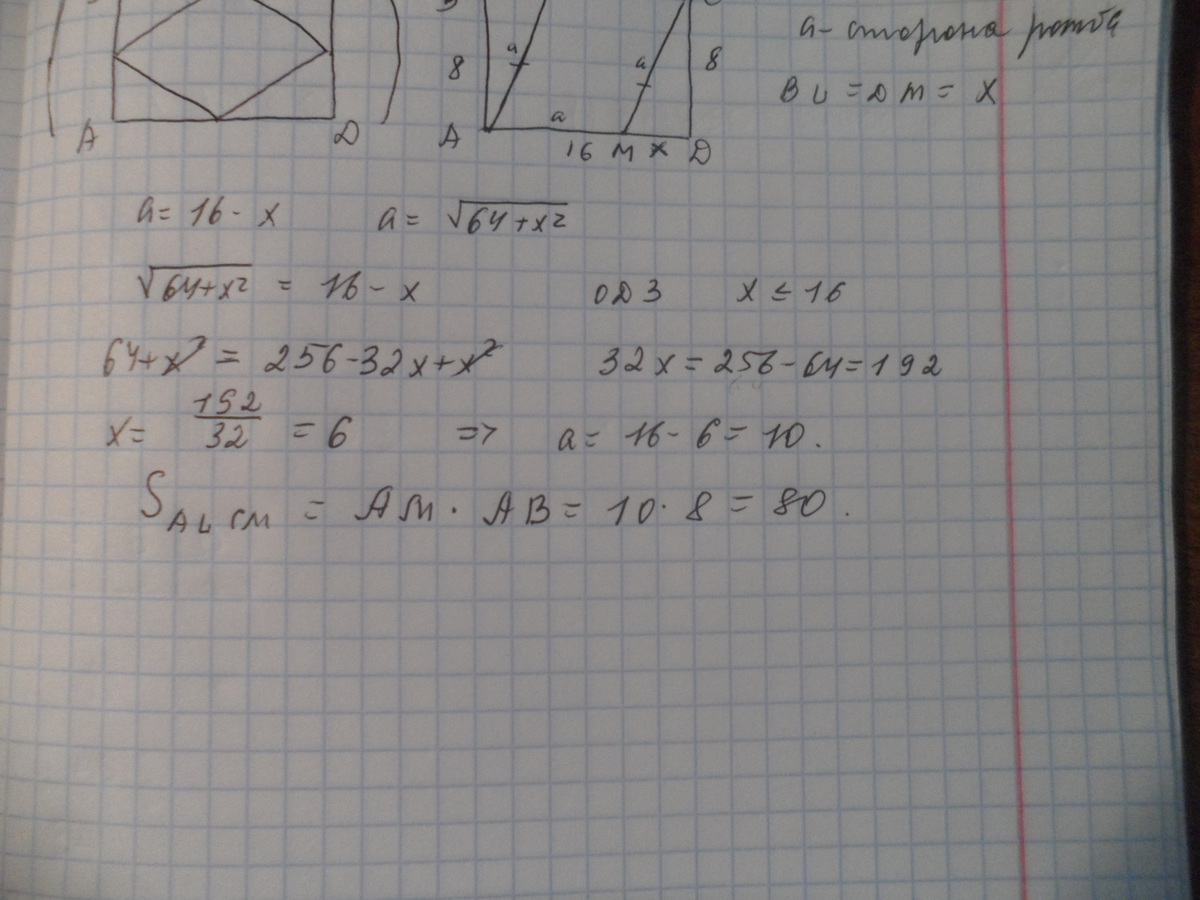 a - сторона ромба
BL = DM = x
8 a a 8
a
A D A 16 M x D
a = 16 - x a = √64+x²
√64+x² = 16 - x ОДЗ x ≤ 16
64+x² = 256-32x+x² 32x = 256-64=192
x = 192/32 = 6 => a = 16 - 6 = 10.
S ALCM = AM · AB = 10 · 8 = 80.